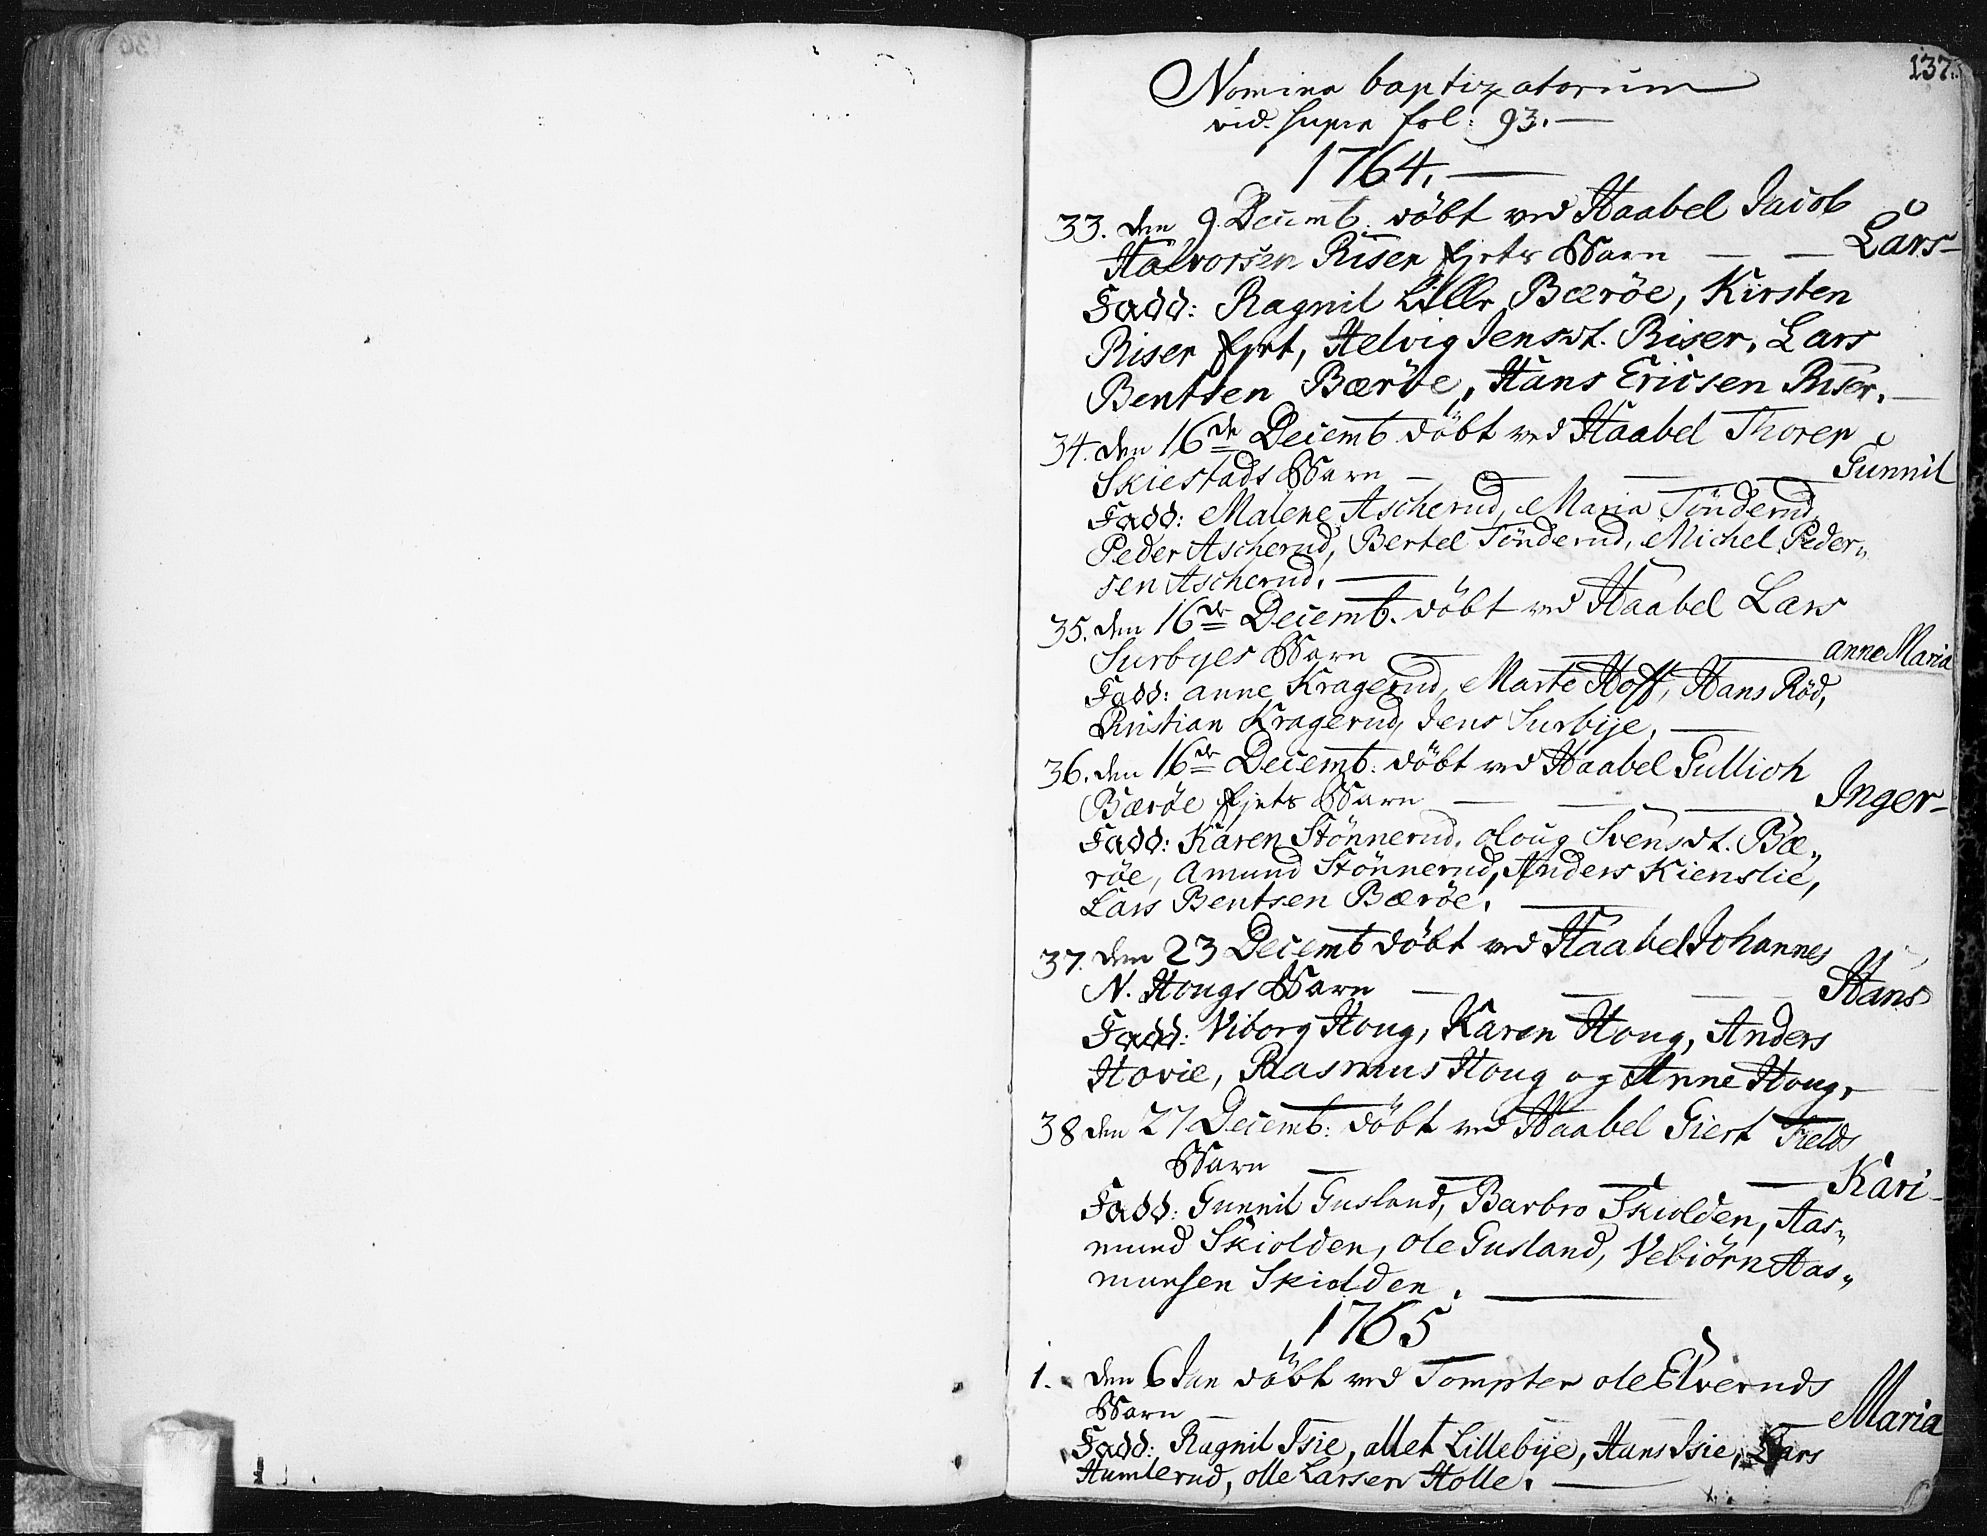 137.
Nomina baptizatorum
vid. supra fol: 93.
1764.
33. den 9 Decemb: döbt ved Haabel Jacob
Halvorsen Riser fjrts Barn — — Lars
Fadd: Ragnil Lille Bæröe, Kirsten
Riser fjrt, Helvig Jensdt. Riser, Lars
Bentsen Bæröe, Hans Ericsen Riser.
34. den 16de Decemb döbt ved Haabel Thorer
Skiestads Barn — — — Gunnil
Fadd: Malene Ascherud, Maria Tönderud,
Peder Ascherud, Bertel Tönderud, Michel Peder„
sen Ascherud.
35. den 16de Decemb. döbt ved Haabel Lars
Surbyes Barn — — — anne Maria
Fadd: anne Kragerud, Marte Hoff, Hans Röd,
Christian Kragerud, Jens Surbije.
36. den 16de Decemb: döbt ved Haabel Gullich
Bæröe fjets Barn — — — Inger
Fadd: Karen Stönnerud, oloug Svensdt. Bæ„
röe, Amund Stönnerud, Anders Kienslie,
Lars Bentsen Bæröe.
37. den 23 Decemb döbt ved Haabel Johannes
N. Hougs Barn — — — Hans
Fadd: Viborg Houg, Karen Houg, Anders
Hovie, Rasmus Houg og Anne Houg.
38 den 27 Decemb: döbt ved Haabel Giert Fields
Barn — — — Kari
Fadd: Gunnil Gusland, Barbro Skiolden, Aas„
mund Skiolden, ole Gusland, Vebiörn Aas„
munsen Skiolden.
1765
1. den 6 Jan döbt ved Tompter ole Elveruds
Barn — Maria
Fadd: Ragnil Isie, allet Lillebije, Hans Isie, Lars
Humlerud, olle Larsen Holle.